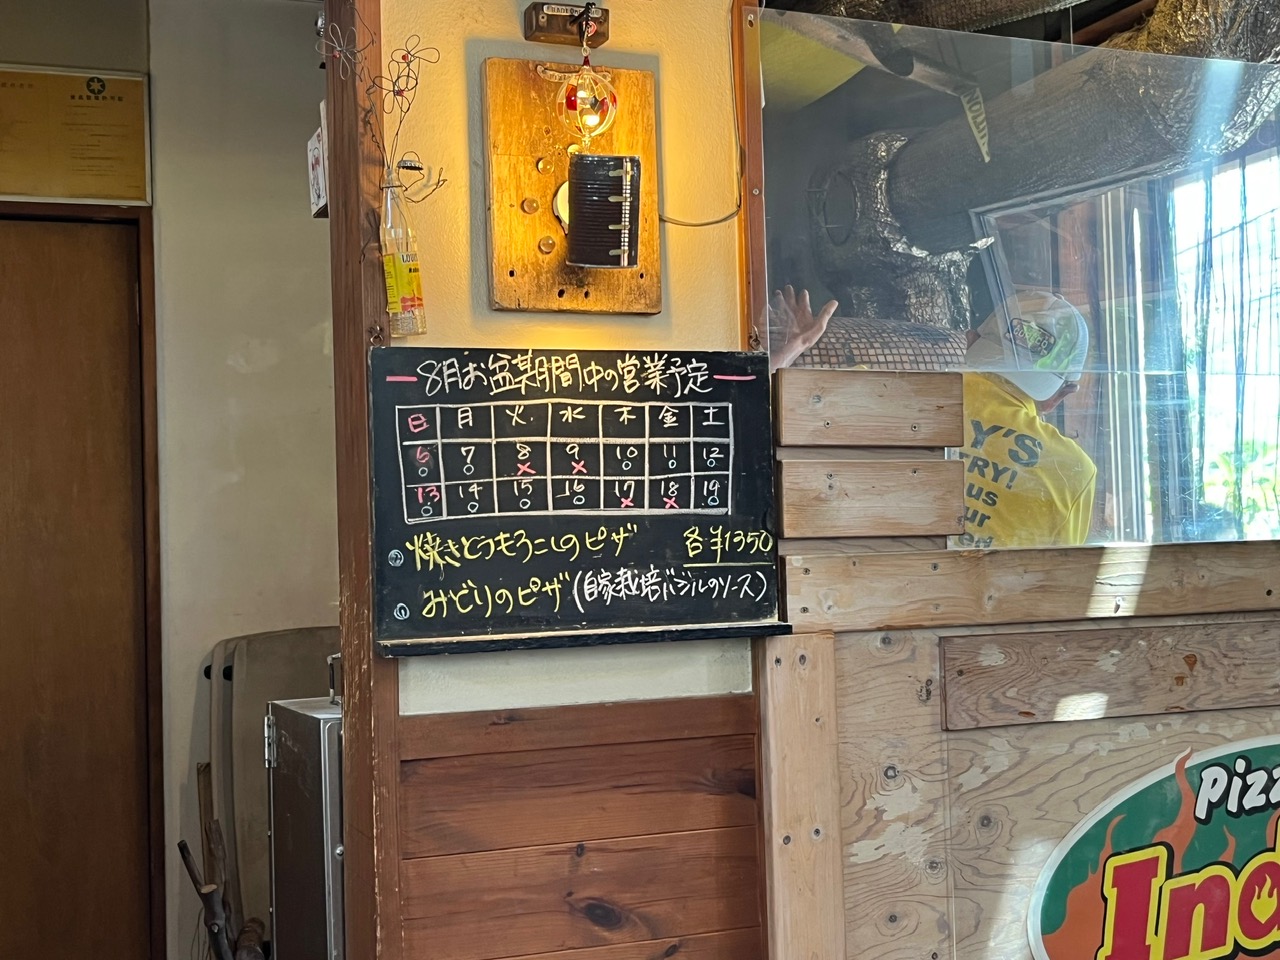 8月お盆期間中の営業予定
日 月 火 水 木 金 土
6 7 8 9 10 11 12
○ ○ × × ○ ○ ○
13 14 15 16 17 18 19
○ ○ ○ ○ × × ○
焼きとうもろこしのピザ 各¥1350
みどりのピザ(自家栽培バジルのソース)
Y'S
TRY!
us
ur
Pizz
Ind